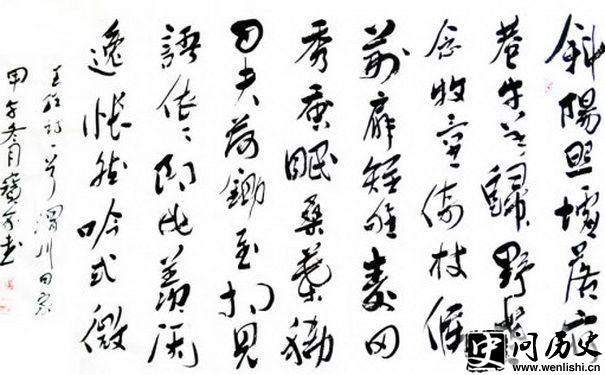 斜陽照墟落窮
巷牛羊歸野老
念牧童倚杖候
荊扉雉雊麦苗
秀蚕眠桑葉稀
田夫荷鋤至相見
語依依即此羡閑
逸悵然吟式微
王維詩一首 渭川田家
甲午冬月
问历史
www.wenlishi.cn